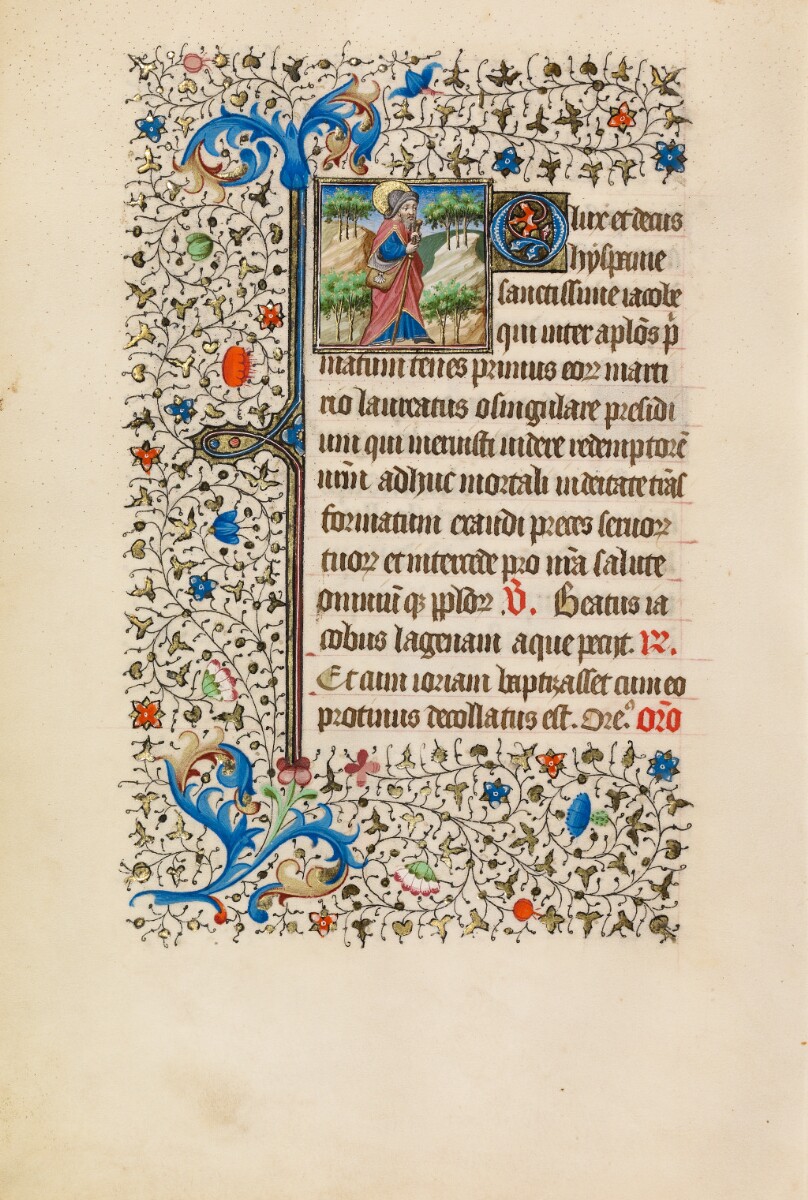 O lux et decus
hyspanie
sanctissime iacobe
qui inter aplōs p̄
matum tenes primus eoꝝ marti
rio laureatus o singulare presidi
um qui meruisti videre redemptorē
nr̄m adhuc mortali in deitate trās
formatum exaudi preces seruoꝝ
tuoꝝ et intercede pro nr̄a salute
omniū qꝫ pplōꝝ . V̄. Beatus ia
cobus lagenam aque petijt. R̄.
Et cum ioriam baptizasset cum eo
protinus decollatus est. Ore⁹ orō